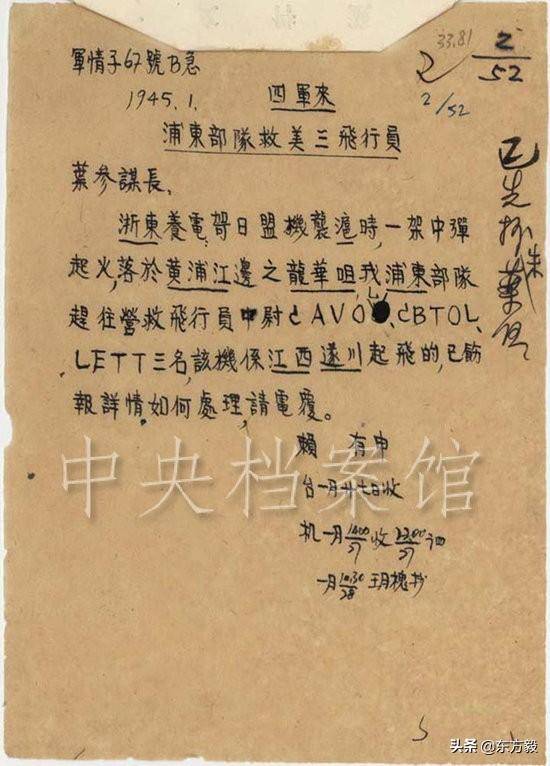 33.81
2
2/52
2/52
軍情子67號B急
1945.1.
四軍來
浦東部隊救美三飛行員
葉參謀長,
浙東養電哿日盟機襲滬時,一架中彈
起火,落於黄浦江邊之龍華咀,我浦東部隊
趕往營救飛行員中尉CAVO、CBTOL、
LETT三名,該機係江西遂川起飛的,已飭
報詳情,如何處理,請電覆。
賴 有申
台一月廿七日收
机一月1400/27收2300/27
一月1030/28
已先抄
中央档案馆
头条@东方毅